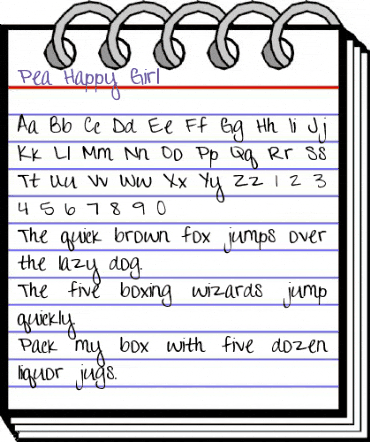 Pea Happy Girl
Aa Bb Cc Dd Ee Ff Gg Hh Ii Jj
Kk Ll Mm Nn Oo Pp Qq Rr Ss
Tt Uu Vv Ww Xx Yy Zz 1 2 3
4 5 6 7 8 9 0
The quick brown fox jumps over
the lazy dog.
The five boxing wizards jump
quickly
Pack my box with five dozen
liquor jugs.